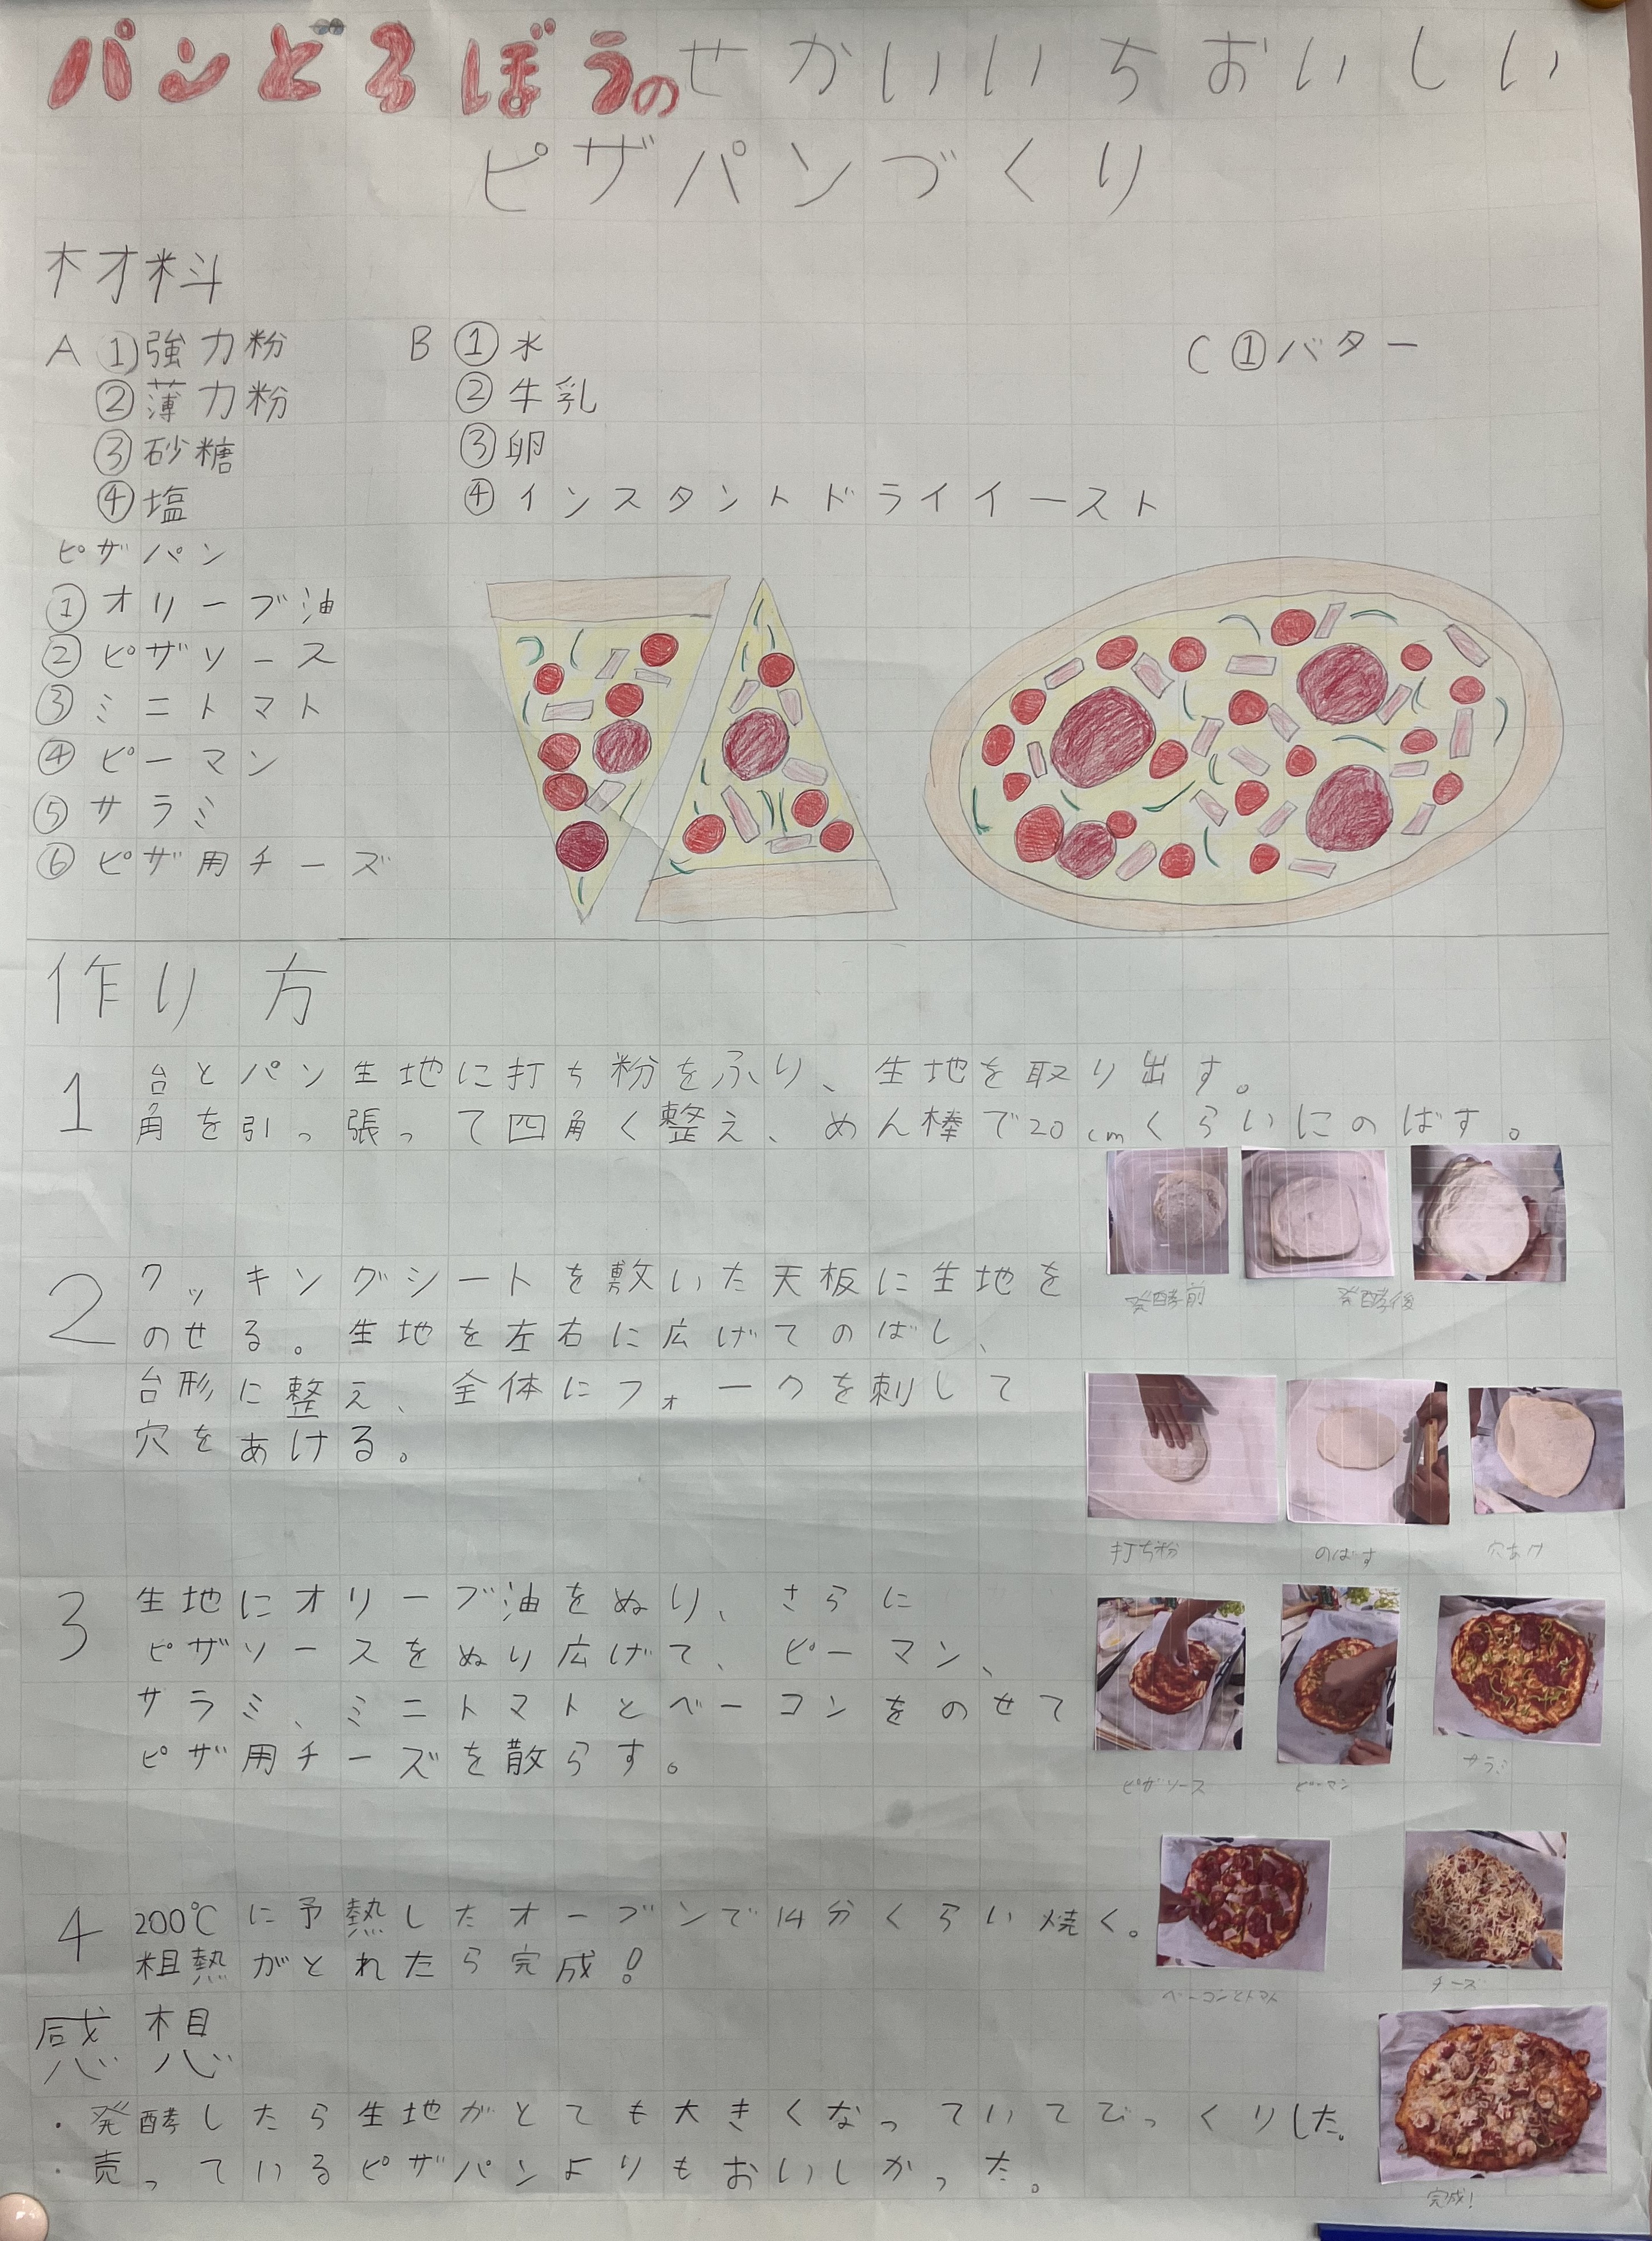 パンどろぼうのせかいいちおいしい
ピザパンづくり
材料
A ①強力粉
②薄力粉
③砂糖
④塩
B ①水
②牛乳
③卵
④インスタントドライイースト
C ①バター
ピザパン
①オリーブ油
②ピザソース
③ミニトマト
④ピーマン
⑤サラミ
⑥ピザ用チーズ
作り方
1 台とパン生地に打ち粉をふり、生地を取り出す。
角を引っ張って四角く整え、めん棒で20cmくらいにのばす。
発酵前
発酵後
2 クッキングシートを敷いた天板に生地を
のせる。生地を左右に広げてのばし、
台形に整え、全体にフォークを刺して
穴をあける。
打ち粉
のばす
穴あけ
3 生地にオリーブ油をぬり、さらに
ピザソースをぬり広げて、ピーマン、
サラミ、ミニトマトとベーコンをのせて
ピザ用チーズを散らす。
ピザソース
ピーマン
サラミ
4 200℃に予熱したオーブンで14分くらい焼く。
粗熱がとれたら完成!
ベーコンとトマト
チーズ
感想
・発酵したら生地がとても大きくなっていてびっくりした。
・売っているピザパンよりもおいしかった。
完成!